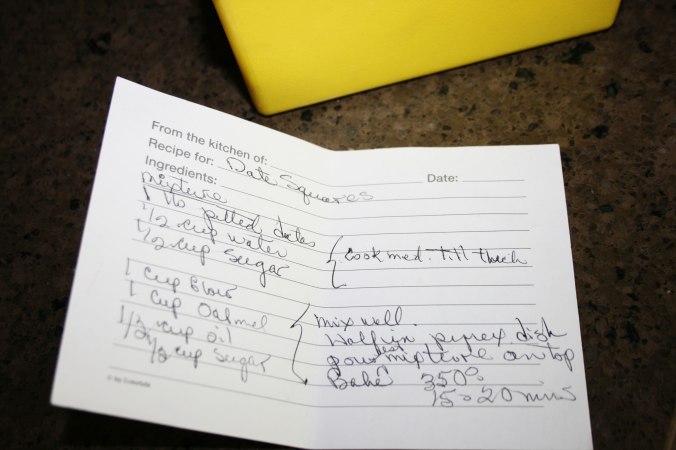 From the kitchen of:
Recipe for: Date Squares Date:
Ingredients:
mixture
1 lb pitted dates
1/2 cup water
1/2 cup sugar
Cook med. till thick
1 cup flour
1 cup Oatmel
1/2 cup oil
1/2 cup sugar
mix well.
Half in pyrex dish
pour mixture on top
Bake 350°
15-20 mins